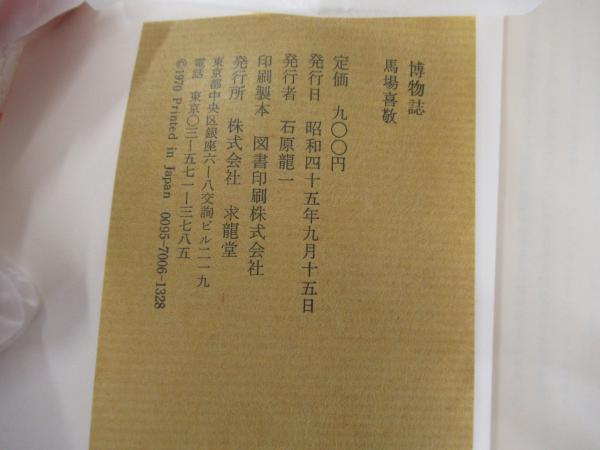 博物誌
馬場喜敬
定価　九〇〇円
発行日　昭和四十五年九月十五日
発行者　石原龍一
印刷製本　図書印刷株式会社
発行所　株式会社　求龍堂
東京都中央区銀座六―八交詢ビル二一九
電話　東京〇三―五七一―三七八五
©1970 Printed in Japan 0095-7006-1328